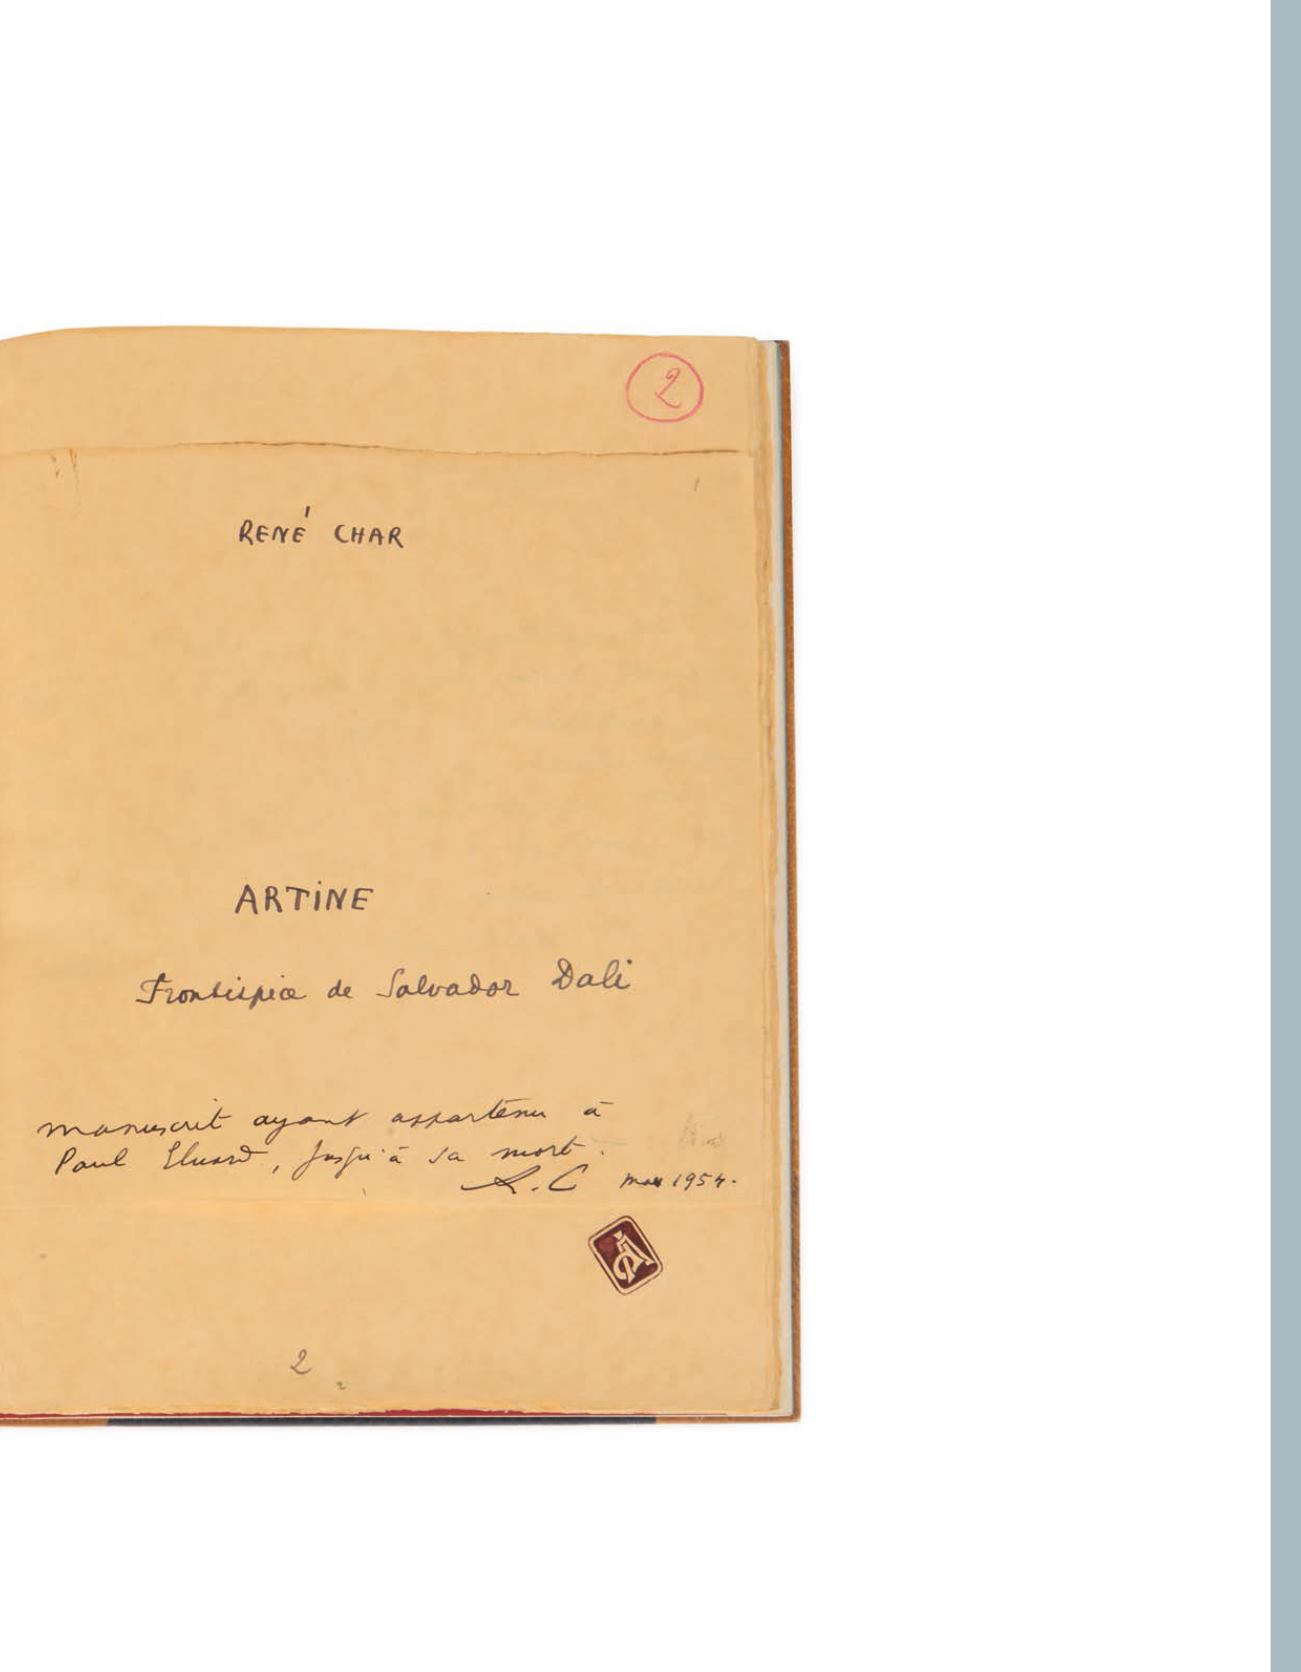 2
RENÉ CHAR
ARTINE
Frontispice de Salvador Dali
manuscrit ayant appartenu à
Paul Eluard, jusqu'à sa mort.
R. C 1954.
2